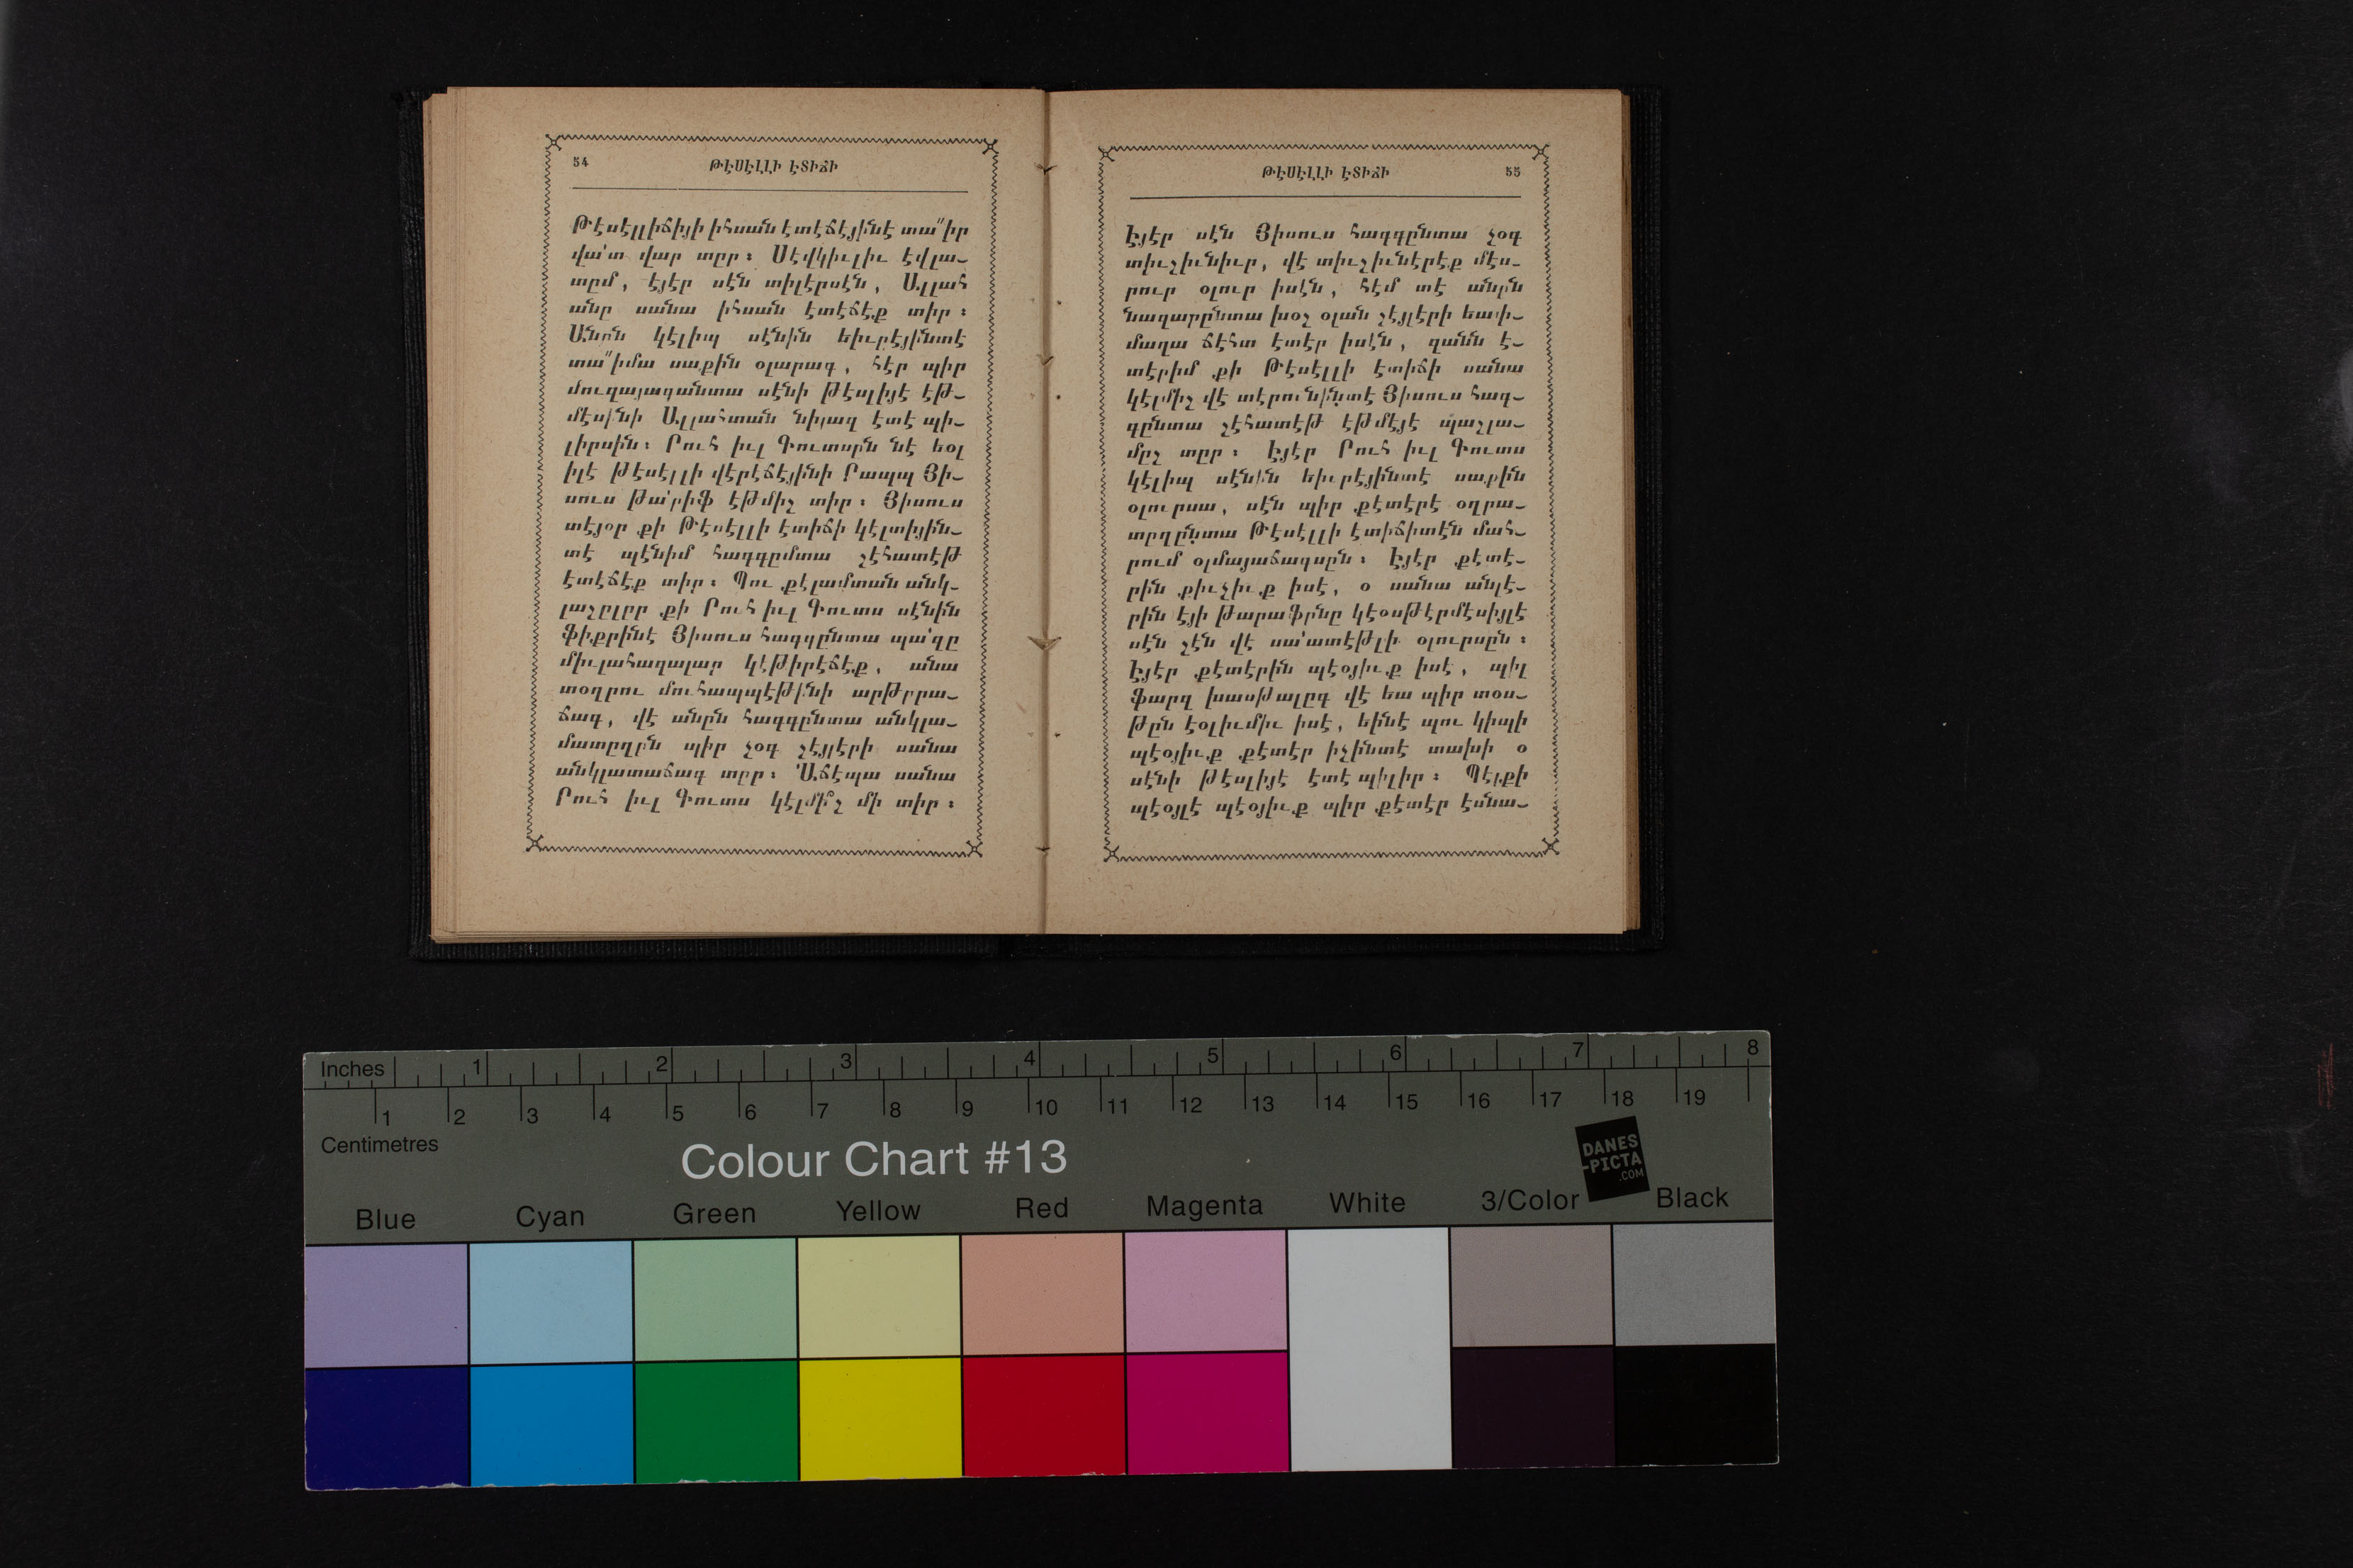 54 ԹԷՍԷԼԼԻ ԷՏԻՃԻ
Թէսէլլիճիյի իհսան էտէճէյինէ տա՞իր
վա՛տ վար տըր ։ Սէվկիւլիւ էվլա–
տըմ, էյէր սէն տիլէրսէն, Ալլահ
անը սանա իհսան էտէճէք տիր ։
Անըն կէլիպ սէնին եիւրէյինտէ
տա՞իմա սաքին օլարագ, հէր պիր
մուղայագանտա սէնի թէսլիյէ էթ–
մէսինի Ալլահտան նիյազ էտէ պի–
լիրսին ։ Րուհ իւլ Գուտսըն նէ եօլ
իլէ թէսէլլի վէրէճէյինի Րապպ Յի–
սուս թա՛րիֆ էթմիշ տիր ։ Յիսուս
տէյօր քի Թէսէլլի էտիճի կէլտիյին–
տէ պէնիմ հագգըմտա շէհատէթ
էտէճէք տիր ։ Պու քէլամտան անկ–
լաշըլըր քի Րուհ իւլ Գուտս սէնին
ֆիքրինէ Յիսուս հագգընտա պա՛զը
միւլահազալար կէթիրէճէք, անա
տօղրու մուհապպէթինի արթըրա–
ճագ, վէ անըն հագգընտա անկլա–
մատըղըն պիր չօգ շէյլէրի սանա
անկլատաճագ տըր ։ Աճէպա սանա
Րուհ իւլ Գուտս կէլմի՞շ մի տիր ։
ԹԷՍԷԼԼԻ ԷՏԻՃԻ 55
Էյէր սէն Յիսուս հագգընտա չօգ
տիւշիւնիւր, վէ տիւշիւնէրէք մէս–
րուր օլուր իսէն, հէմ տէ անըն
նազարընտա խօշ օլան շէյլէրի եափ–
մաղա ճէհտ էտէր իսէն, զանն է–
տէրիմ քի Թէսէլլի էտիճի սանա
կէլմիշ վէ տէրունինտէ Յիսուս հագ–
գընտա շէհատէթ էթմէյէ պաշլա–
մըշ տըր ։ Էյէր Րուհ իւլ Գուտս
կէլիպ սէնին եիւրէյինտէ սաքին
օլուրսա, սէն պիր քէտէրէ օղրա–
տըղընտա Թէսէլլի էտիճիտէն մահ–
րում օլմայաճագսըն ։ Էյէր քէտէ–
րին քիւչիւք իսէ, օ սանա անլէ–
րին էյի թարաֆընը կէօսթէրմէսիյլէ
սէն շէն վէ սա՛ատէթլի օլուրսըն ։
Էյէր քէտէրին պէօյիւք իսէ, պիլ
ֆարզ խասթալըգ վէ եա պիր տօս–
թըն էօլիւմիւ իսէ, եինէ պու կիպի
պէօյիւք քէտէր իչինտէ տախի օ
սէնի թէսլիյէ էտէ պիլիր ։ Պէլքի
պէօյլէ պէօյիւք պիր քէտէր էսնա–
Inches 1 2 3 4 5 6 7 8
1 2 3 4 5 6 7 8 9 10 11 12 13 14 15 16 17 18 19
Centimetres
Colour Chart #13
DANES
-PICTA
.COM
Blue Cyan Green Yellow Red Magenta White 3/Color Black